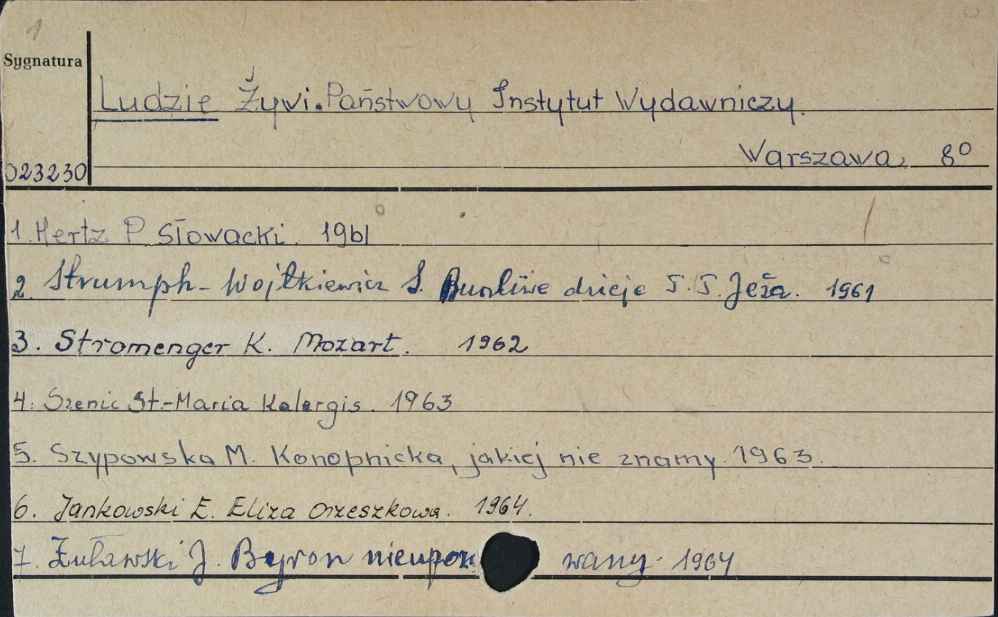 1
Sygnatura
Ludzie Żywi. Państwowy Instytut Wydawniczy.
Warszawa, 8º
023230
1. Hertz P. Słowacki. 1961
2. Strumph-Wojtkiewicz S. Burzliwe dzieje T. T. Jeża. 1961
3. Stromenger K. Mozart. 1962
4. Szenic St.-Maria Kalergis. 1963
5. Szypowska M. Konopnicka, jakiej nie znamy. 1963.
6. Jankowski E. Eliza Orzeszkowa. 1964.
7. Żuławski J. Byron nieupo wany. 1964